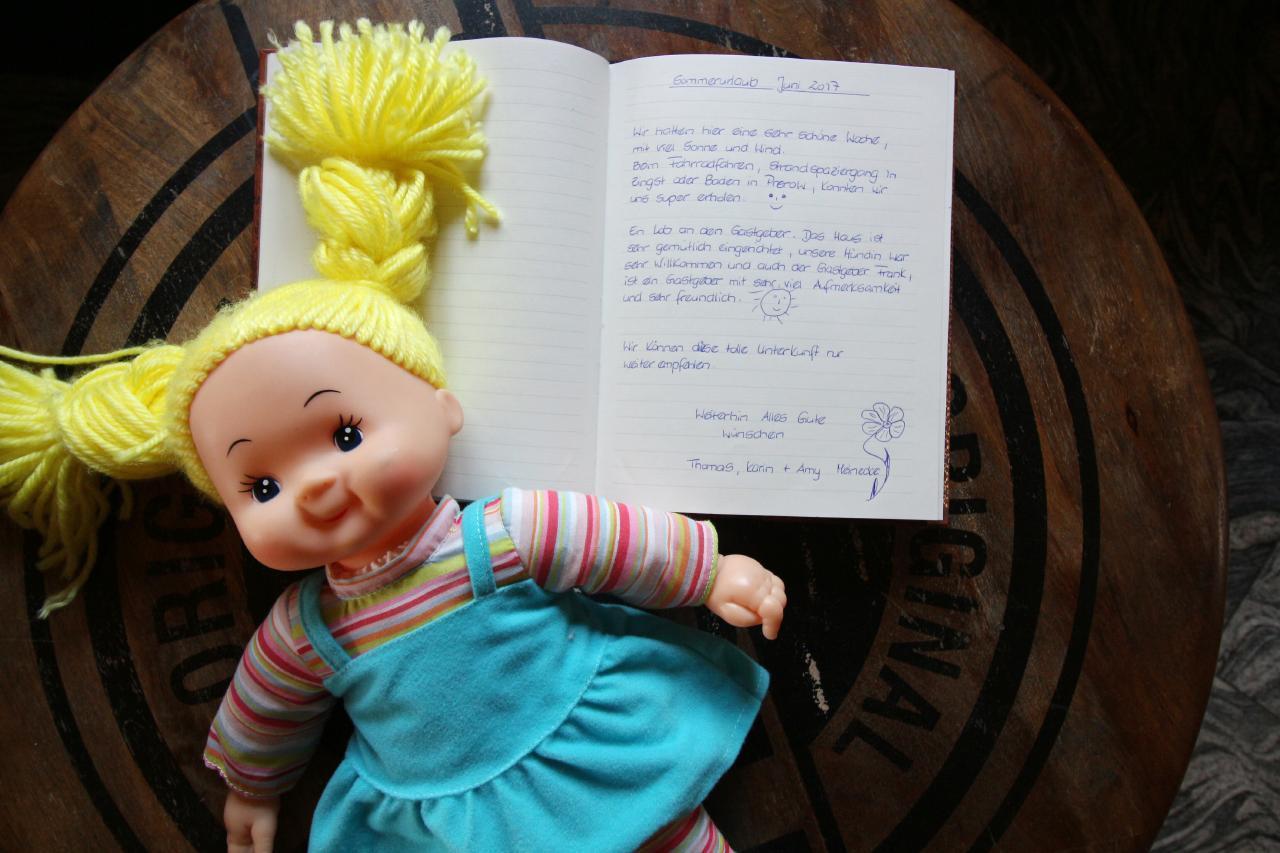 Sommerurlaub Juni 2017
Wir hatten hier eine sehr schöne Woche,
mit viel Sonne und Wind.
Beim Fahrradfahren, Strandspaziergang in
Zingst oder Baden in Prerow, konnten wir
uns super erholen.
Ein Lob an den Gastgeber. Das Haus ist
sehr gemütlich eingerichtet, unsere Hündin war
sehr Willkommen und auch der Gastgeber Frank,
ist ein Gastgeber mit sehr viel Aufmerksamkeit
und sehr freundlich.
Wir können diese tolle Unterkunft nur
weiter empfehlen.
Weiterhin Alles Gute
wünschen
Thomas, Karin + Amy Meinecke
ORIG
ORIGINAL